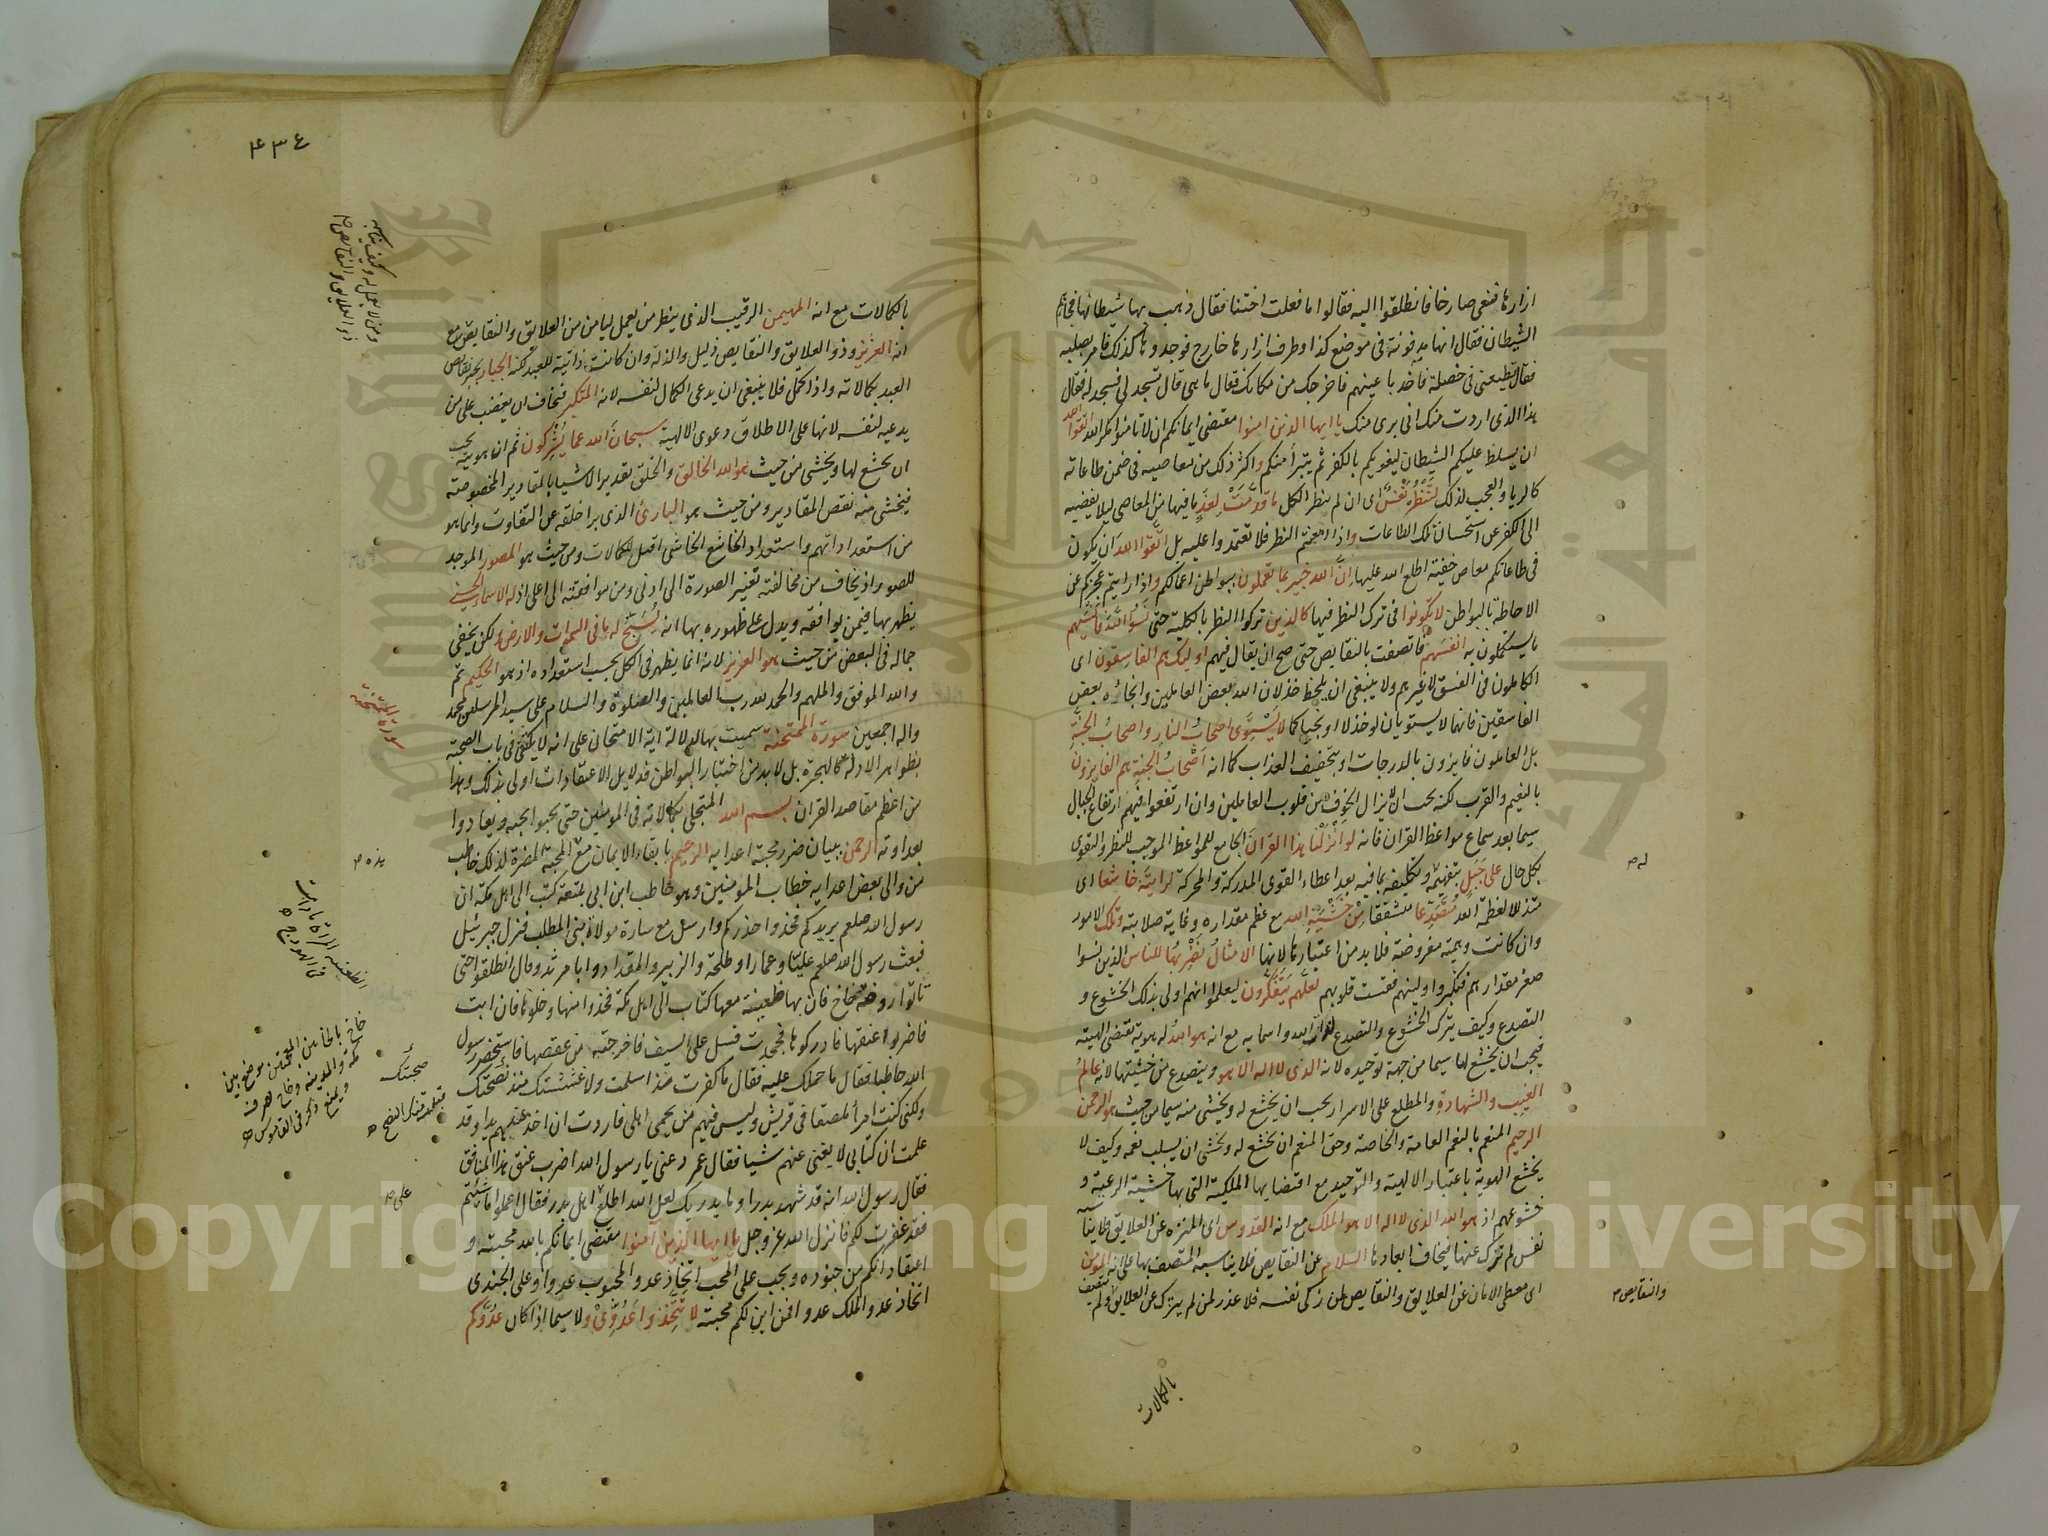 ازارها فنعى صارخا فانطلقوا اليه فقالوا ما فعلت اختنا فقال ذهب بها شيطانها فجاءهم
الشيطان فقال انها مدفونة فى موضع كذا وطرف ازارها خارج فوجدوها كذلك فامر بصلبه
فقال تطيعنى فى خصلة فاخذ باعينهم فاخرجك من مكانك فقال ما هى قال تسجد لى فسجد له فقال
هذا الذى اردت منك انى برى منك يا ايها الذين امنوا مقتضى ايمانكم ان لا تامنوا مكر الله اتقوا الله
ان يسلط عليكم الشيطان ليغويكم بالكفر ثم يتبرأ منكم واكثر ذلك من معاصيه فى ضمن طاعاته
كالريا والعجب لذلك لتنظر نفس اى ان لم ينظر الكل ما قدمت لغد ما فيها من المعاصى ليلا يفضيه
الى الكفر عن استحسان تلك الطاعات واذا امعنتم النظر فلا تعتمدوا عليه بل اتقوا الله ان يكون
فى طاعاتكم معاص خفية اطلع الله عليها ان الله خبير بما تعملون ببواطن اعمالكم واذا رايتم عجزكم عن
الاحاطة بالبواطن لا تكونوا فى ترك النظر فيها كالذين تركوا النظر بالكلية حتى نسوا الله فانسيهم
ما يستكملون به انفسهم فاتصفت بالنقايص حتى صح ان يقال فيهم اوليك هم الفاسقون اى
الكاملون فى الفسق لا غيرهم ولا ينبغى ان يلحظ خذلان الله بعض العاملين وانجاؤه بعض
الفاسقين فانهما لا يستويان لو خذلا او نجيا كما لا يستوى اصحاب النار واصحاب الجنة
بل العاملون فايزون بالدرجات او بتخفيف العذاب كما انه اصحاب الجنة هم الفايزون
بالنعيم والقرب لكنه يجب ان لا يزال الخوف من قلوب العاملين وان ارتفعوا فيهم ارتفاع الجبال
سيما بعد سماع مواعظ القران فانه لو انزلنا هذا القران الجامع للمواعظ الموجب للنظر والتقوى
بكل حال على جبل بتفهيمه وتكليفه بما فيه بعد اعطاء القوى المدركة والمحركة لرايته خاشعا اى
متذللا لعظمة الله متصدعا متشققا من خشية الله مع عظم مقداره وغاية صلابته وتلك الامور
وان كانت وهمية مفروضة فلا بد من اعتبارها لانها الامثال نضربها للناس الذين نسوا
صغر مقدارهم فتكبروا ولينهم فقست قلوبهم لعلهم يتفكرون ليعلموا انهم اولى بذلك الخشوع و
التصدع وكيف يترك الخشوع والتصدع لذات الله واسمايه مع انه هو الله له هوية تقتضى الهيته
فيجب ان يخشع لها سيما من جهة توحيده لانه الذى لا اله الا هو ويتصدع من خشيتها لانه عالم
الغيب والشهادة والمطلع على الاسرار يجب ان يخشع له ويخشى منه سيما من حيث هو الرحمن
الرحيم المنعم بالنعم العامة والخاصة وحق المنعم ان يخشع له ويخشى ان يسلب نعمه وكيف لا
يخشع الهوية باعتبار الالهية والتوحيد مع اقتضايها الملكية التى بها خشية الرعية و
خشوعهم اذ هو الله الذى لا اله الا هو الملك مع انه القدوس اى المنزه عن العلايق
نفس لم تترك عنها فيخاف ابعادها السلام عن النقايص فلا يناسبه المتصف بها على انه المومن
اى معطى الامان عن العلايق والنقايص لمن زكى نفسه فلا عذر لمن لم يتزك عن العلايق ولم يتصف
له ص
والنقايص ص
بالكمالات
٤٣٤
بالكمالات مع انه المهيمن الرقيب الذى ينظر من يعمل ليامن من العلايق والنقايص مع
انه العزيز وذو العلايق والنقايص ذليل والذلة وان كانت ذاتية للعبد لكنه الجبار يجبر نقايص
العبد بكمالاته واذا كمل فلا ينبغى ان يدعى الكمال لنفسه لانه المتكبر فيخاف ان يغضب على من
يدعيه لنفسه لانها على الاطلاق دعوى الالهية سبحان الله عما يشركون ثم ان هويته يجب
ان يخشع لها ويخشى من حيث هو الله الخالق والخلق تقدير الاشيا بالمقادير المخصوصة
فيخشى منه نقص المقادير ومن حيث هو البارئ الذى برا خلقه عن التفاوت وانما هو
من استعداداتهم واستعداد الخاشع الخاشى اقبل للكمالات ومن حيث هو المصور الموجد
للصور اذ يخاف من مخالفته تغيير الصورة الى ادنى ومن موافقته الى اعلى اذ له الاسماء الحسنى
يظهر بها فيمن يوافقه ويدل على ظهوره بها انه يسبح له ما فى السموات والارض ولكن يخفى
جماله فى البعض من حيث هو العزيز لانه انما يظهر فى الكل بحسب استعداده اذ هو الحكيم تم
والله الموفق والملهم والحمد لله رب العالمين والصلوة والسلام على سيد المرسلين محمد
واله اجمعين سورة الممتحنة سميت بها لدلالة اية الامتحان على انه لا يكتفى فى باب الصحبة
بظواهر الادلة كالهجرة بل لا بد من اختبار البواطن فدلايل الاعتقادات اولى بذلك وهذا
من اعظم مقاصد القران بسم الله المتجلى بكمالاته فى المومنين حتى يحبوا لحبه ويعادوا
بعداوته الرحمن ببيان ضرر محبة اعدايه الرحيم بابقاء الايمان مع المحبة المضرة لذلك خاطب
من والى بعض اعدايه خطاب المومنين وهو حاطب ابن ابى بلتعة كتب الى اهل مكة ان
رسول الله صلعم يريدكم فخذوا حذركم وارسل مع سارة مولاة بنى المطلب فنزل جبرئيل
فبعث رسول الله صلعم عليا وعمارا وطلحة والزبير والمقداد وابا مرثد وقال انطلقوا حتى
تاتوا روضة خاخ فان بها ظعينة معها كتاب الى اهل مكة فخذوا منها وخلوها فان ابت
فاضربوا عنقها فادركوها فجحدت فسل على السيف فاخرجته من عقصها فاستحضر رسول
الله حاطبا فقال ما حملك عليه فقال ما كفرت منذ اسلمت ولا غششتك منذ نصحتك
ولكنى كنت امرأ ملصقا فى قريش وليس فيهم من يحمى اهلى فاردت ان اخذ عندهم يدا وقد
علمت ان كتابى لا يغنى عنهم شيا فقال عمر دعنى يا رسول الله اضرب عنق هذا المنافق
فقال رسول الله انه قد شهد بدرا وما يدريك لعل الله اطلع اهل بدر فقال اعملوا ما شئتم
فقد غفرت لكم فانزل الله عز وجل يا ايها الذين آمنوا مقتضى ايمانكم بالله محبته و
اعتقاد انكم من جنوده ويجب على المحب اتخاذ عدو المحبوب عدوا وعلى الجندى
اتخاذ عدو الملك عدوا فمن اين لكم محبته لا تتخذوا عدوى ولا سيما اذا كان عدوكم
سورة الممتحنة
هذه ص
الظعينة المراة ما دامت
فى الهودج
خاخ بالخاءين المعجمتين موضع بين
مكة والمدينة
صحبتك
على ص
Copyright © King Saud University
جامعة الملك سعود
1957
King Saud University